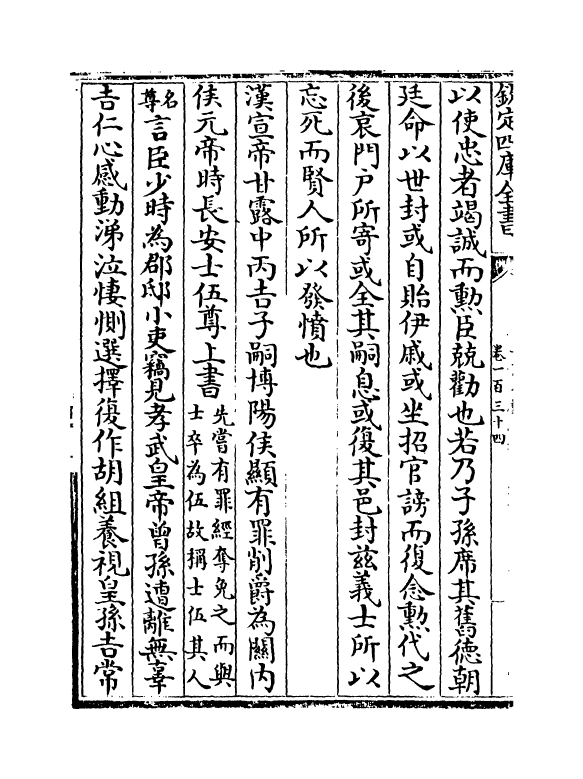 欽定四庫全書
卷一百三十四
以使忠者竭誠而勲臣兢勸也若乃子孫席其舊德朝
廷命以世封或自貽伊戚或坐招官謗而復念勲代之
後哀門户所寄或全其嗣息或復其邑封兹義士所以
忘死而賢人所以發憤也
漢宣帝甘露中丙吉子嗣博陽侯顯有罪削爵為關内
侯元帝時長安士伍尊上書先嘗有罪經奪免之而與
士卒為伍故稱士伍其人
名
尊言臣少時為郡邸小吏竊見孝武皇帝曾孫遭離無辜
吉仁心感動涕泣悽惻選擇復作胡組養視皇孫吉常